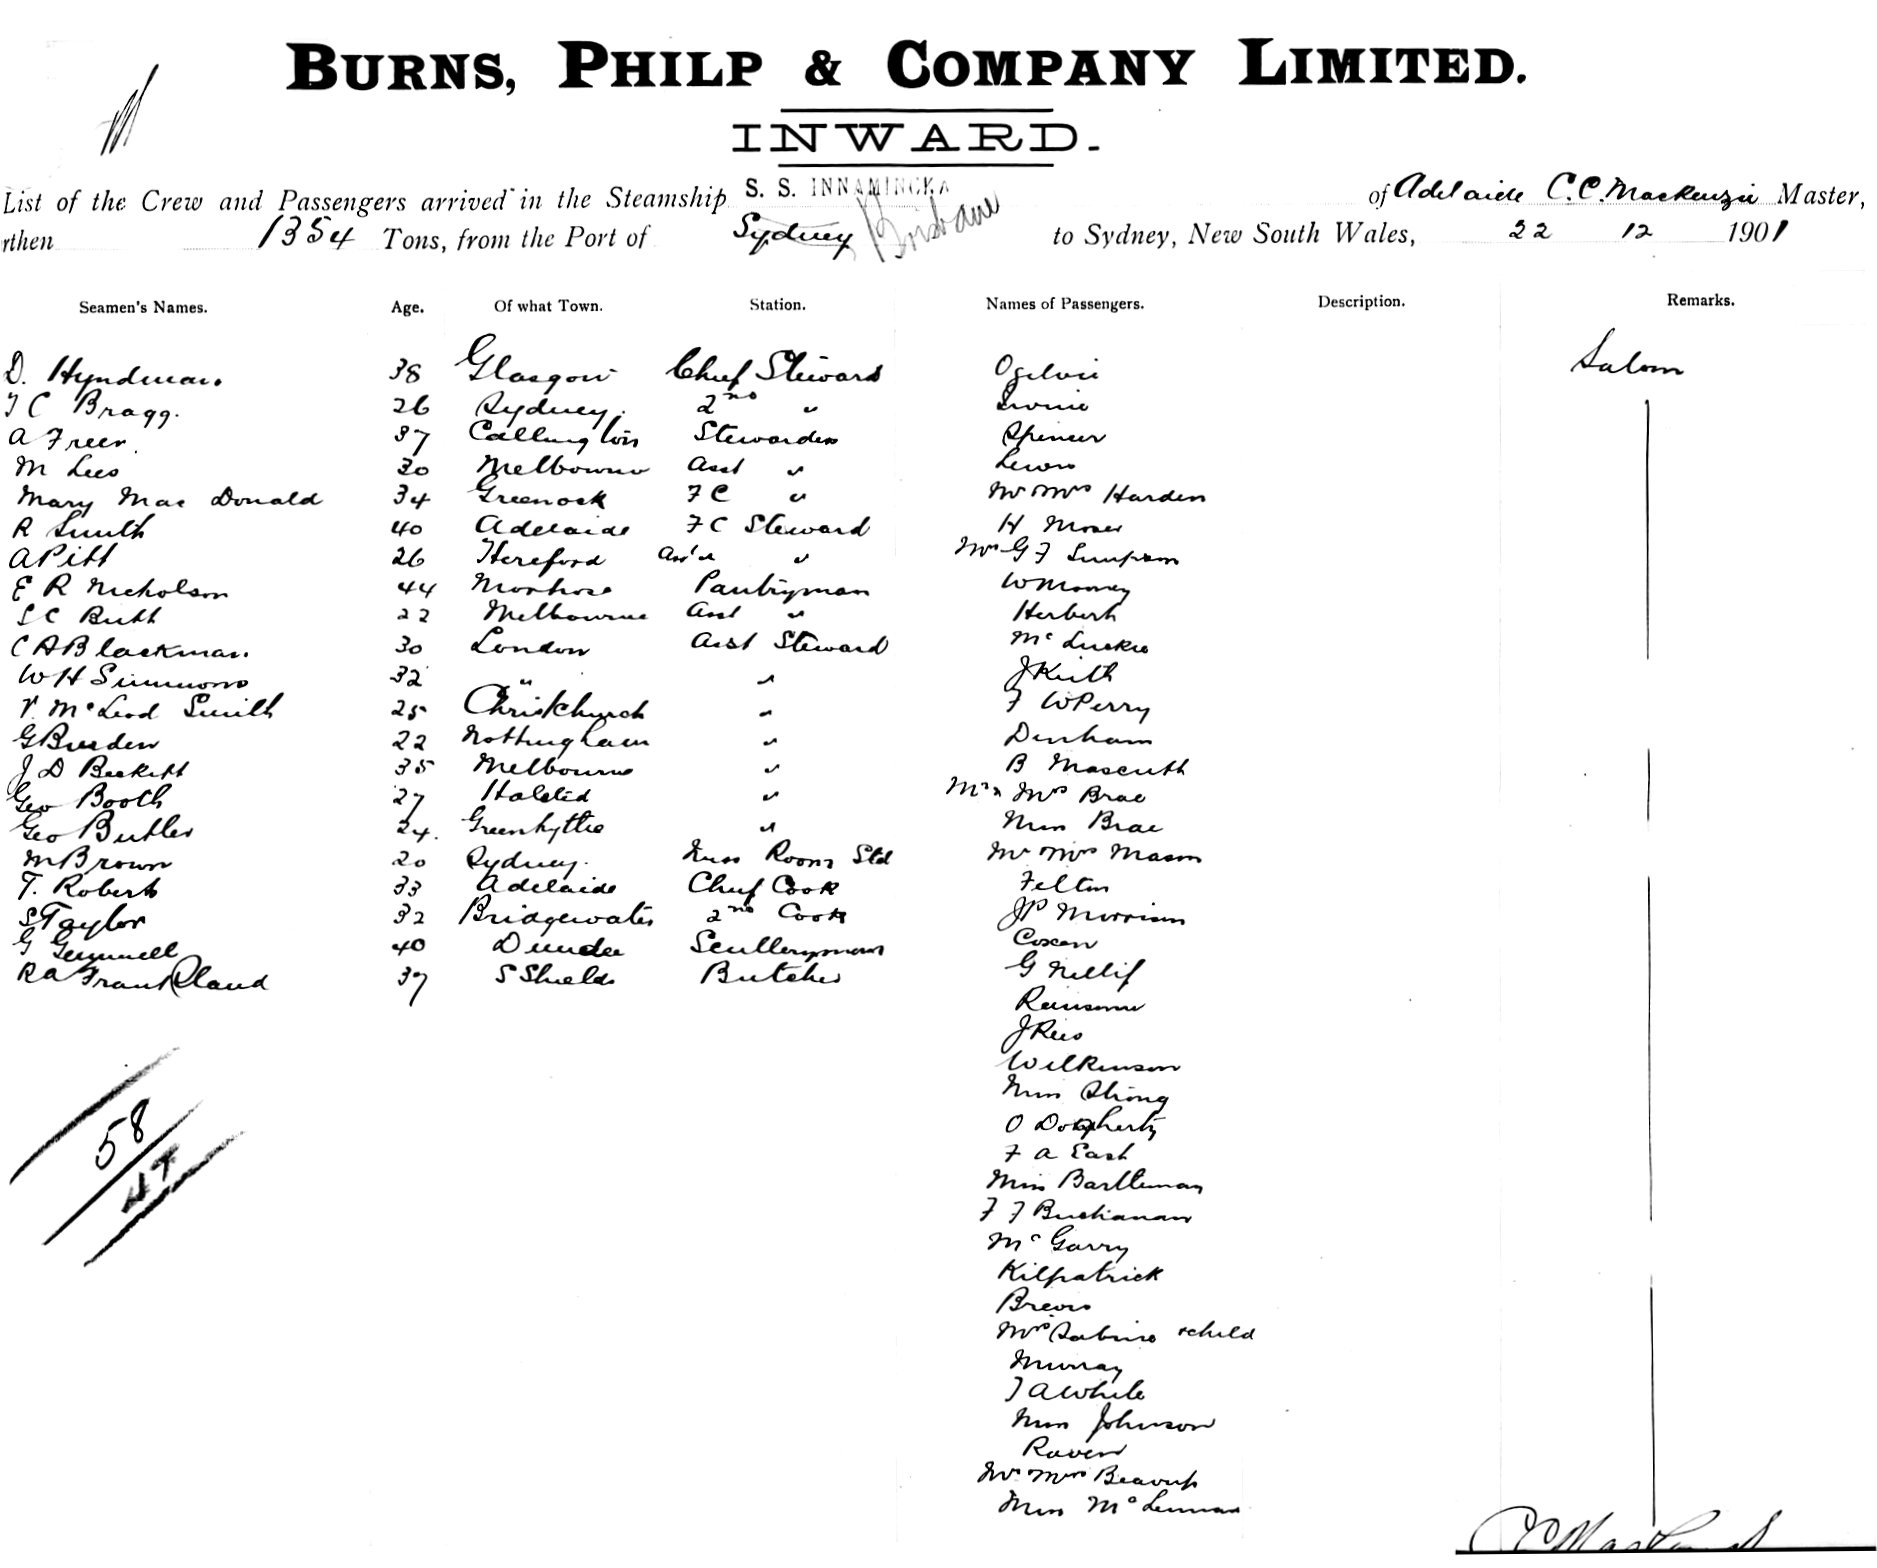 BURNS, PHILP & COMPANY LIMITED.
INWARD.
List of the Crew and Passengers arrived in the Steamship S. S. INNAMINCKA of Adelaide C.C. Mackenzie Master,
rthen 1354 Tons, from the Port of Sydney Brisbane to Sydney, New South Wales, 22 12 1901
Seamen's Names. Age. Of what Town. Station. Names of Passengers. Description. Remarks.
D. Hyndman 38 Glasgow Chief Steward Ogilvie Saloon
T C Bragg. 26 Sydney. 2nd " Irvine
A Freer. 37 Callington Stewardess Spencer
M Lees 30 Melbourne Asst " Lewis
Mary Mac Donald 34 Greenock FC " Mr Mrs Harden
R Smith 40 Adelaide FC Steward H Moses
A Pitt 26 Hereford Ass't " Mrs G F Simpson
E R Nicholson 44 Montrose Pantryman W Mooney
S C Butt 22 Melbourne Asst " Herbert
C A Blackman. 30 London Asst Steward McLuckie
W H Simmons 32 " " J Keith
V. McLeod Smith 25 Christchurch " F W Perry
G Burden 22 Nottingham " Denham
J D Beckett 35 Melbourne " B
Geo Booth 27 Halsted " Mr & Mrs Brae
Geo Butler 24. Greenhythe " Miss Brae
M Brown 20 Sydney. Mess Room Std Mr Mrs Mason
T. Roberts 33 Adelaide Chief Cook Felton
S Taylor 32 Bridgewater 2nd Cook J P Morrison
G Gemmell 40 Dundee Sculleryman Coxen
R A Frankland 37 S Shields Butcher G
Ransome
J Rees
Wilkinson
Miss Strong
O Dogherty
F A East
Miss Bartleman
F F Buchanan
McGarry
Kilpatrick
Brews
Mrs Sabine & child
Murray
T A White
Miss Johnson
Raven
Mr Mrs
Miss McLennan
58